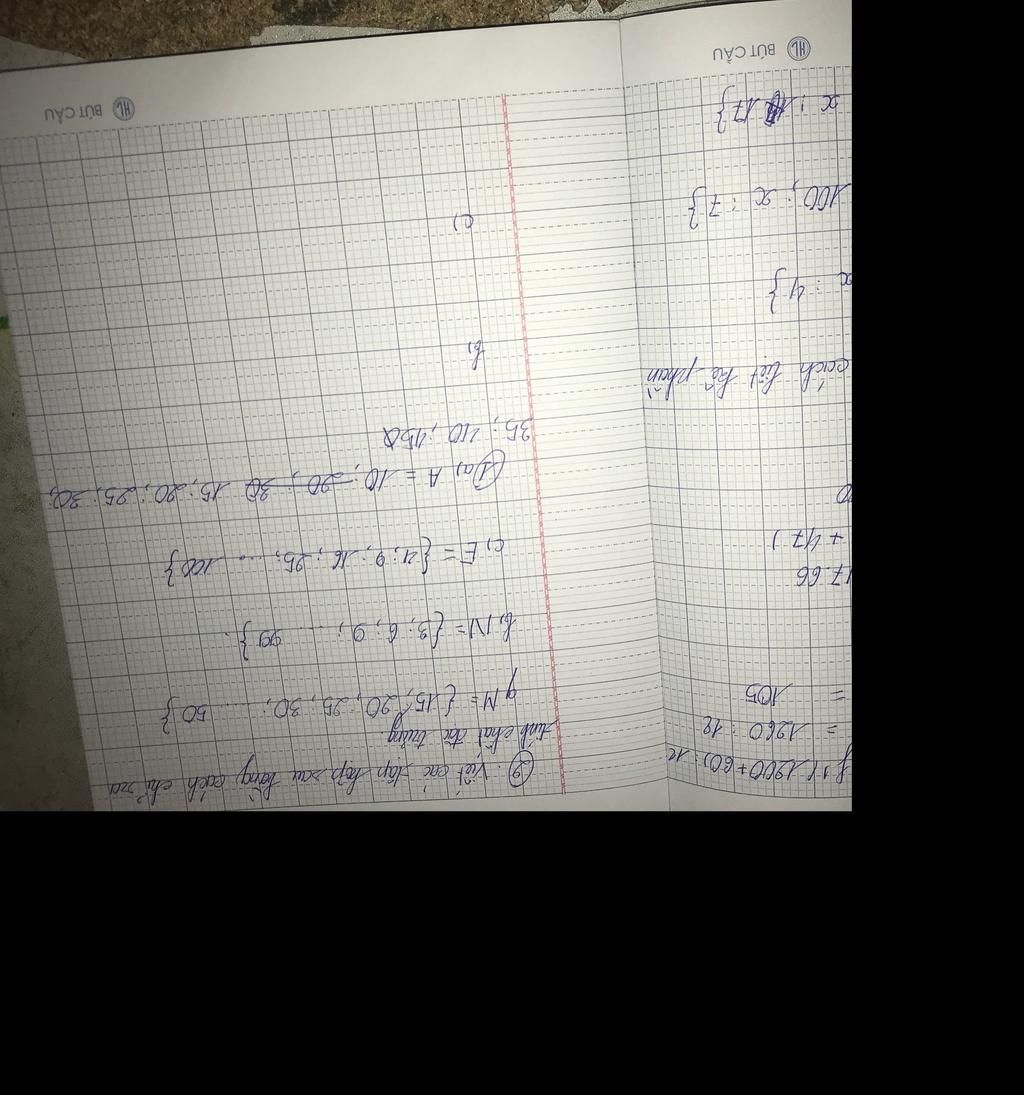 f, ( 1200 + 60) : 12
= 1260 : 12
= 105
17.66
+ 47 )
0
cách liệt kê phần
x : 4 }
100 ; x : 7 }
x : 17 }
HL BÚT CẦU
② . Viết các tập hợp sau bằng cách chỉ ra
tính chất đặc trưng
M = { 15 ; 20 ; 25 ; 30 ; ..... 50 }
b, N = { 3 ; 6 ; 9 ; ..... 99 } .
c, E = { 4 ; 9 ; 16 ; 25 ; .... 100 }
① a, A = 10 ; 20 ; 30 15 ; 20 ; 25 ; 30 ;
35 ; 40 ; 45
b,
c)
HL BÚT CẦU